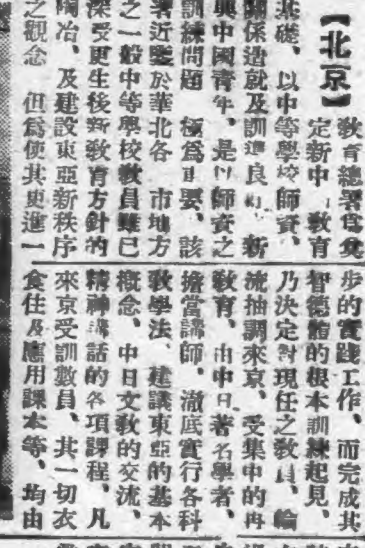 【北京】教育總署爲奠
定新中 教育
基礎、以中等學校師資、
關係造就及訓 良 新
興中國青年、是以師資之
訓練問題 極爲 要、該
署近鑒於華北各 市地方
之一般中等學校教員雖已
深受更生後新教育方針的
陶冶、及建設東亞新秩序
之觀念 但爲使其更進一
步的實踐工作、而完成其
智德體的根本訓練起見、
乃決定對現任之教員、輪
流抽調來京、受集中的再
教育、由中日著名學者、
擔當講師、澈底實行各科
教學法 建議東亞的基本
概念、中日文教的交流、
精神講話的各項課程、凡
來京受訓敎員、其一切衣
食住及應用課本等、均由